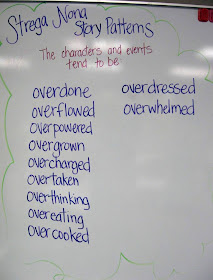 Strega Nona
Story Patterns
The characters and events
tend to be:
overdone
overflowed
overpowered
overgrown
overcharged
overtaken
over-thinking
overeating
overcooked
overdressed
overwhelmed